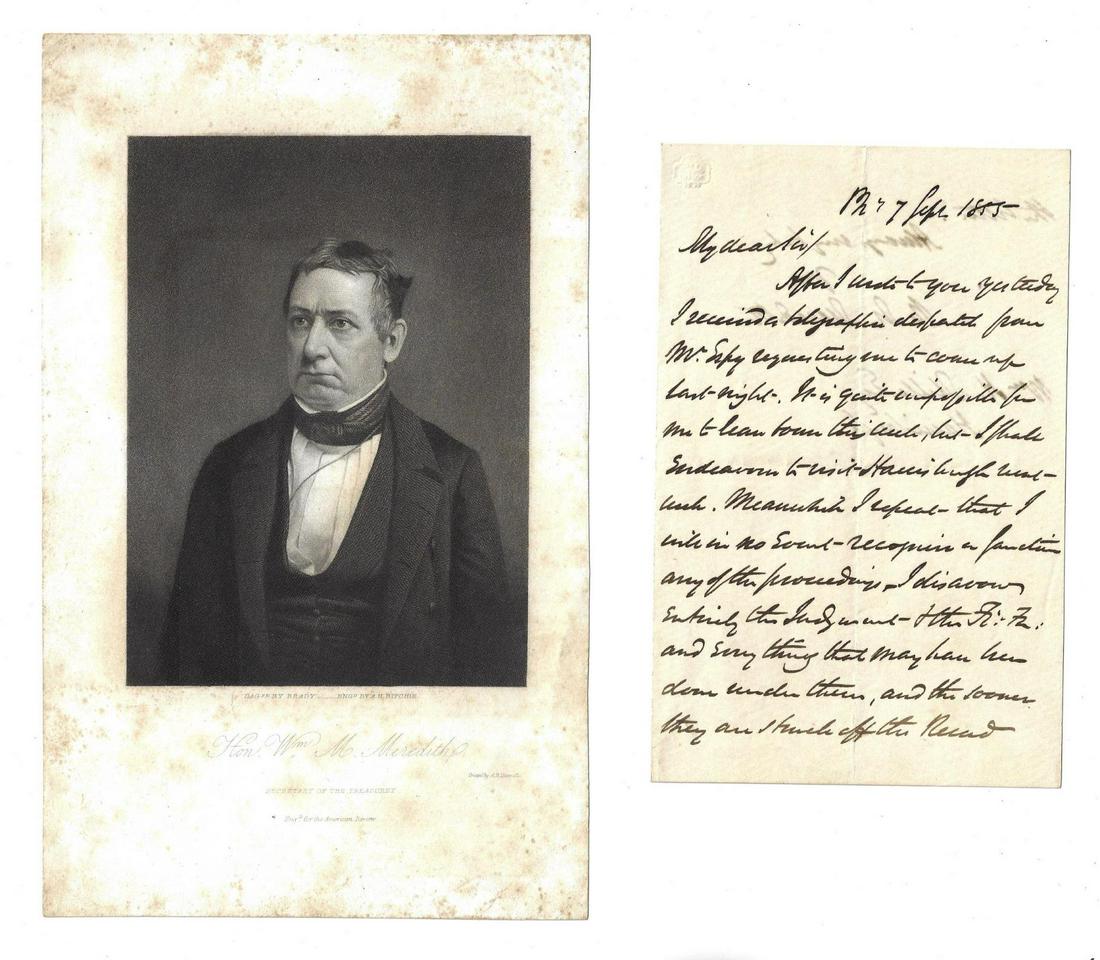 DAG.BY BRADY ENG.D BY A.H. RITCHIE.
Hon. Wm. M. Meredith
Printed by
SECRETARY OF THE TREASURY
Eng.d for the American Review
7 Sept. 1855
My dear Sir/
After I wrote to you yesterday
I received a telegraphic despatch from
Mr. Espy requesting me to come up
last night. It is quite impossible for
me to leave town this week, but I shall
Endeavour to visit Harrisburgh next
week. Meanwhile I repeat that I
will in no Event recognise or sanction
any of the proceedings. I disavow
Entirely the Judgment & the Fi: Fa:
and Everything that may have been
done under them, and the sooner
they are struck off the Record